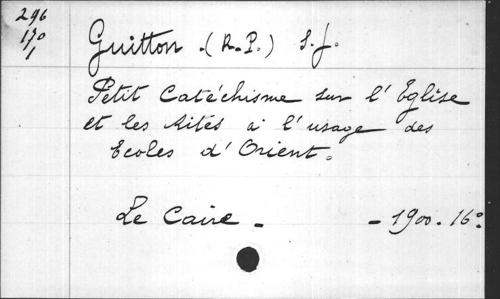 296
170
1
Guitton. (R.P.) S.J.
Petit Catéchisme sur l'Église
et les Rites à l'usage des
Ecoles d'Orient.
Le Caire - - 1900. 16°